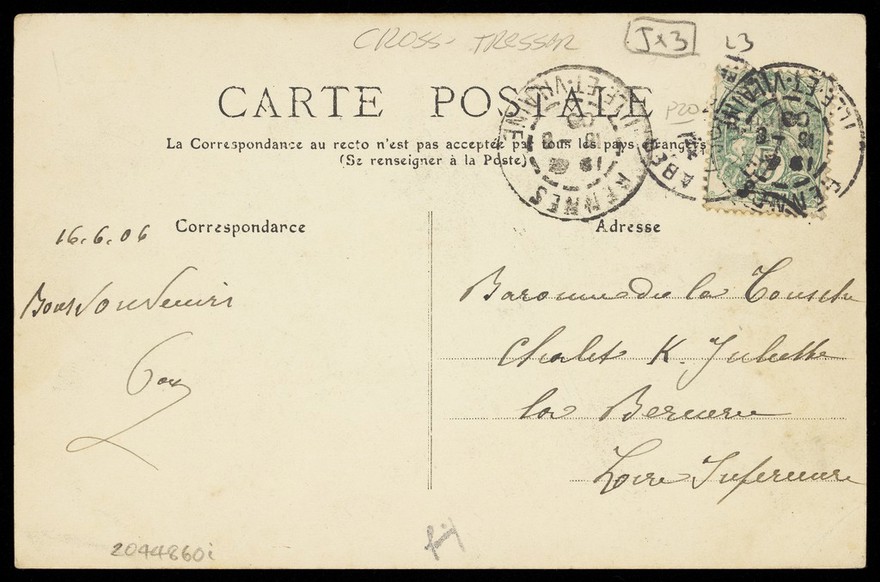 CROSS-TRESSER
J x 3
L3
CARTE POSTALE
La Correspondance au recto n'est pas acceptée par tous les pays étrangers
(Se renseigner à la Poste)
RENNES
ILLE-ET-VILAINE
RENNES
ILLE-ET-VILAINE
Correspondance
16.6.06
Bons Souvenirs
Adresse
Baronne de la
Chalet K. Juliette
la Bernerie
Loire Inferieure
2044860i